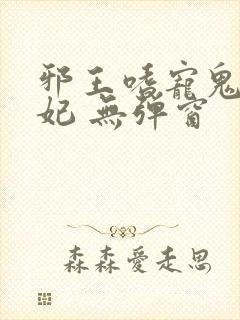 邪王嗜寵鬼
妃 無彈窗
森森愛走思